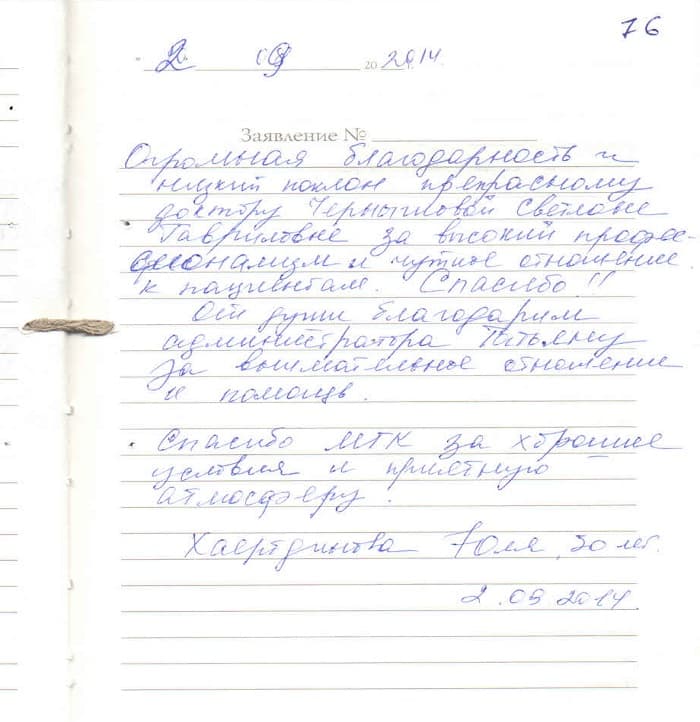 76
" 2 " 09 20 2014 г.
Заявление №
Огромная благодарность и
низкий поклон прекрасному
доктору Чернышовой Светлане
Гавриловне за высокий профес-
сионализм и чуткое отношение
к пациентам. Спасибо!!
От души благодарим
администратора Татьяну
за внимательное отношение
и помощь.
Спасибо МТК за хорошие
условия и приятную
атмосферу.
Хаертдинова Юля, 30 лет.
2.09 2014.